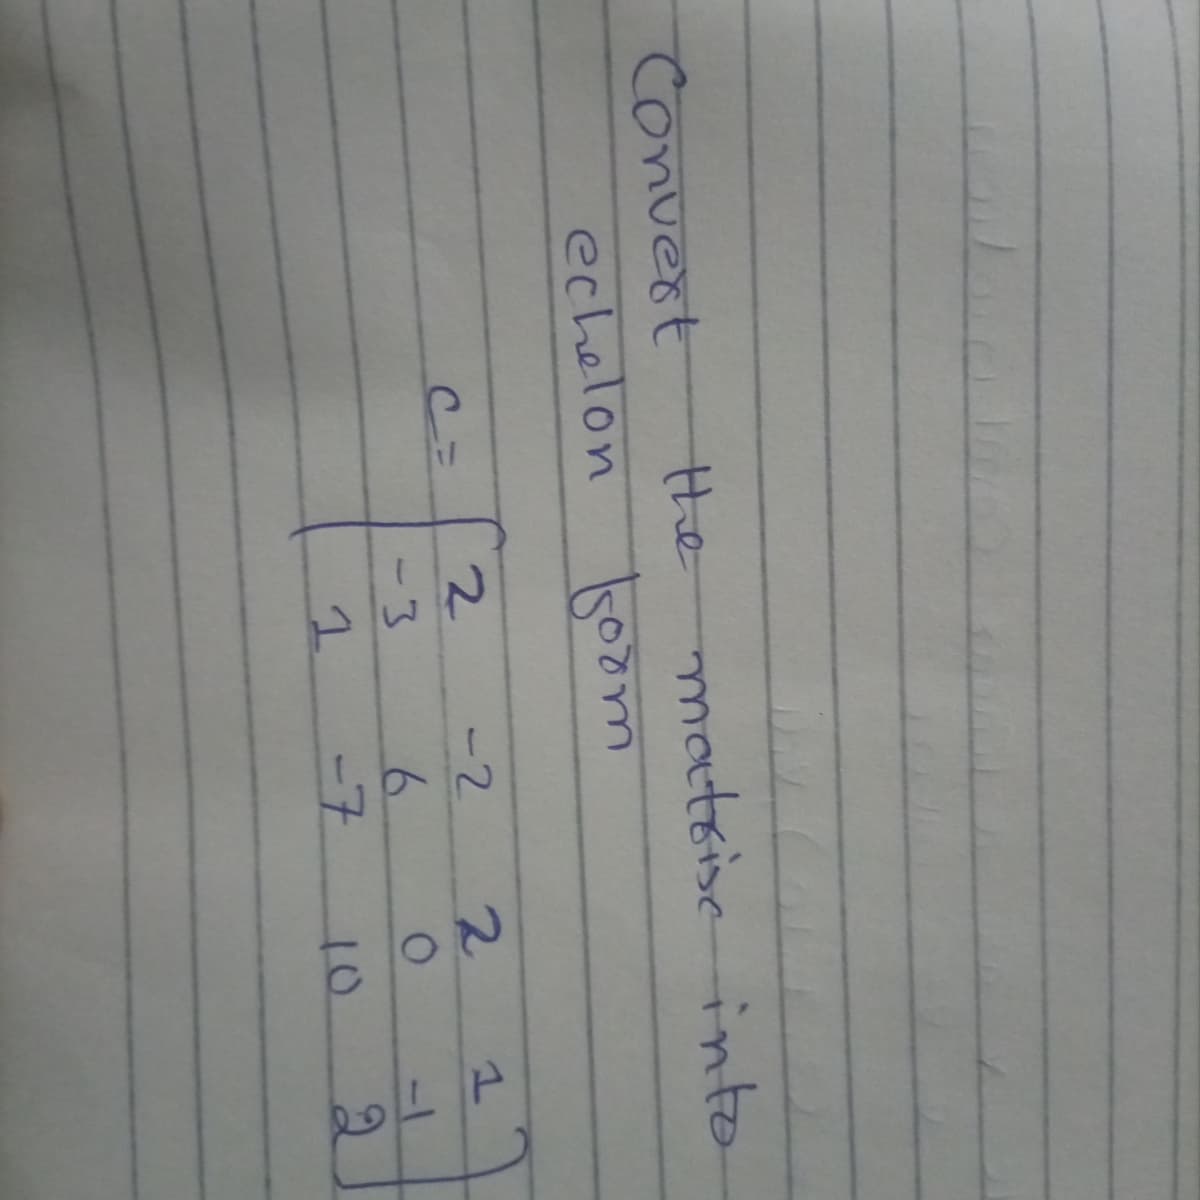 Convert the matrix into
echelon form
C = [ 2 -2 2 1
-3 6 0 -1
1 -7 10 2 ]